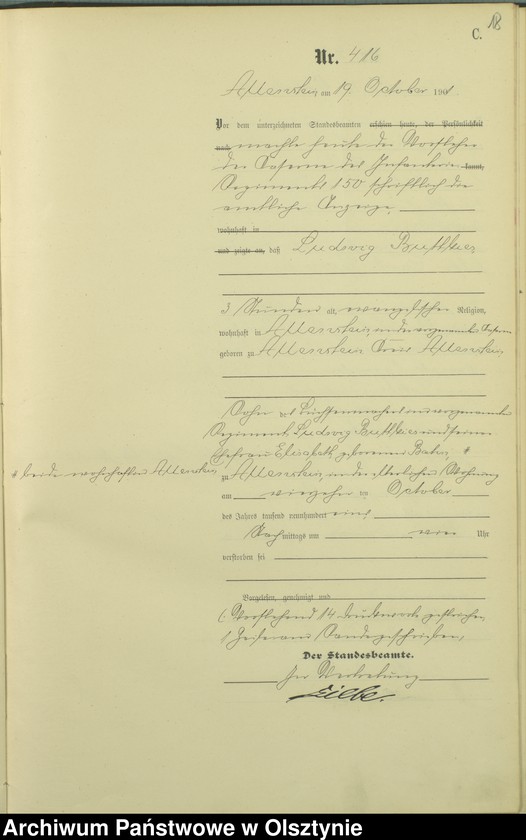 C. 18
Nr. 416
Allenstein am 19. October 1901
Vor dem unterzeichneten Standesbeamten erschien heute, der Persönlichkeit
nach machte heute der Vorsteher
der Caserne des Infanterie kannt,
Regiments 150 schriftlich die
amtliche Anzeige,
wohnhaft in
und zeigte an, daß Ludwig
3 Stunden alt, evangelischer Religion,
wohnhaft in Allenstein, in der vorgenannten Caserne
geboren zu Allenstein Kreis Allenstein
Sohn des Büchsenmachers im vorgenannten
Regiment, Ludwig und seiner
Ehefrau Elisabeth, geborenen #
# beide wohnhaft in Allenstein
zu Allenstein, in der elterlichen Wohnung
am vierzehn ten October
des Jahres tausend neunhundert eins
Nachmittags um Uhr
verstorben sei
Vorgelesen, genehmigt und
Vorstehend 14 Druckworte gestrichen,
1 Zeile am Rande geschrieben,
Der Standesbeamte.
In Vertretung